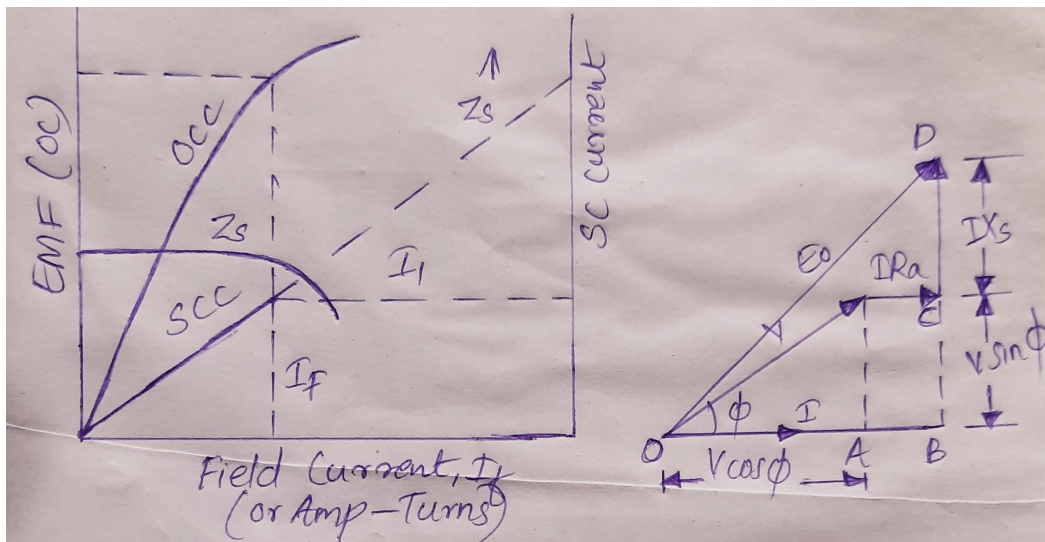 EMF (OC)
OCC
Zs
SCC
I1
IF
Zs
SC Current
Field Current, If
(or Amp-Turns)
D
E0
IXs
IRa
C
V sin ϕ
ϕ
I
O
A
B
V cos ϕ